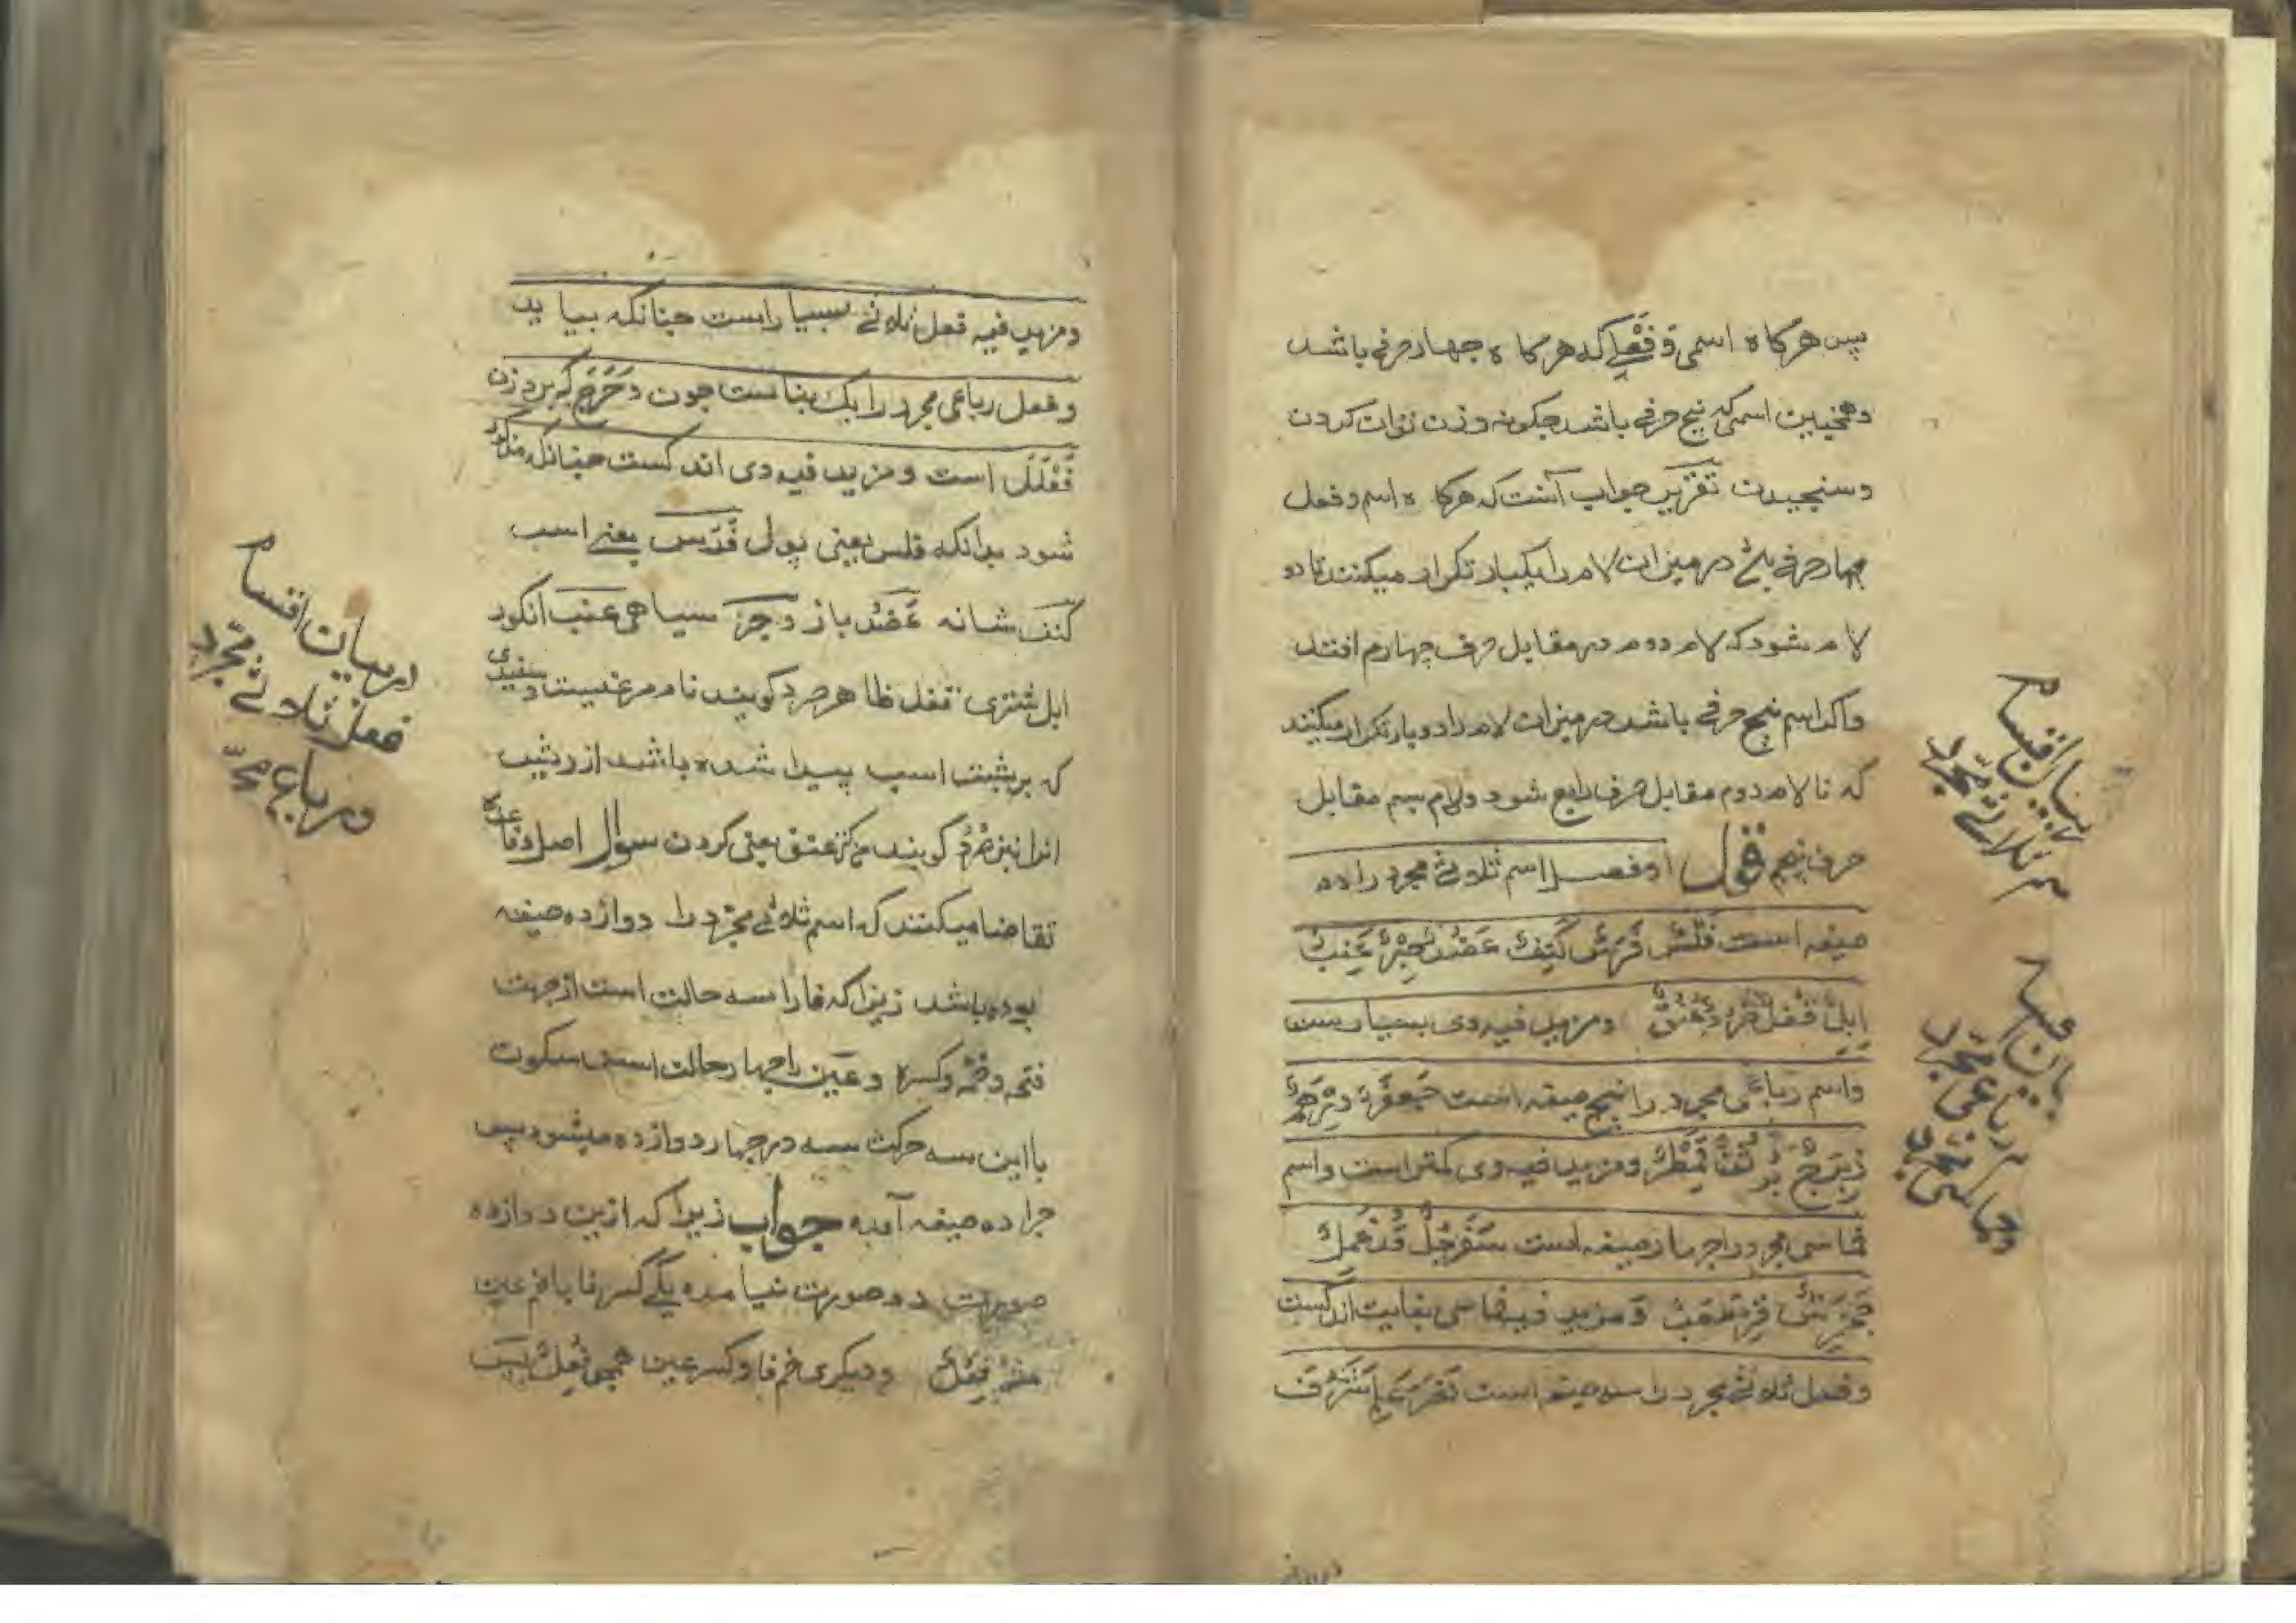 پس هرکاه اسمی و فعلی که هرکاه جهار حرفی باشد
و همچنین اسمی که پنج حرفی باشد چکونه وزن توان کردن
و سنجیدن تقریر جواب آنست که هرکاه اسم و فعل
چهار حرفی در میزان لام را یکبار تکرار میکنند تا دو
لام شود که لام دوم در مقابل حرف چهارم افتد
و اکر اسم پنج حرفی باشد در میزان لام را دوبار تکرار میکنند
که تا لام دوم مقابل حرف رابع شود و لام سیم مقابل
حرف پنجم قول او فصل اسم ثلاثی مجرد را ده
صیغه است فَلْسٌ فَرَسٌ کَتِفٌ عَضُدٌ حِبْرٌ عِنَبٌ
اِبِلٌ قُفْلٌ صُرَدٌ عُنُقٌ و مزید فیه وی بسیارست
و اسم رباعی مجرد را پنج صیغه است جَعْفَرٌ دِرْهَمٌ
زِبْرِجٌ بُرْثُنٌ قِمَطْرٌ و مزید فیه وی کمتر است و اسم
خماسی مجرد را چهار صیغه است سَفَرْجَلٌ قُذَعْمِلٌ
جَحْمَرِشٌ قِرْطَعْبٌ و مزید فیه خماسی بغایت اندکست
و فعل ثلاثی مجرد را سه صیغه است نَصَرَ عَلِمَ شَرُفَ
بیان اقسام
اسم ثلاثی مجرد
بیان
رباعی مجرد
و خماسی مجرد
و مزید فیه فعل ثلاثی بسیار است چنانکه بیاید
و فعل رباعی مجرد را یک بناست چون دَحْرَجَ که بر وزن
فَعْلَلَ است و مزید فیه وی اندکست چنانکه مذکور
شود بدانکه فلس یعنی پول فَرَس یعنی اسب
کتف شانه عَضُد بازو حبر سیاهی عنب انکور
ابل شتری قفل ظاهر صرد کویند نام مرغیست و سفیدی
که بر پشت اسب پیدا شده باشد از ریش
انرا نیز صُرَد کویند عنق یعنی کردن سوال اصل و قاعده
تقاضا میکنند که اسم ثلاثی مجرد را دوازده صیغه
بوده باشد زیرا که فا را سه حالت است از جهت
فتحه و ضمه و کسره و عین را جهار حالت است سکون
با این سه حرکت سه در جهار دوازده میشود پس
چرا ده صیغه آمده جواب زیرا که ازین دوازده
صورت دو صورت نیامده یکی کسر فا با ضم عین
مثل فِعُل و دیکری ضم فا و کسر عین همچو فُعِل پس
در بیان اقسام
فعل ثلاثی مجرد
و رباعی مجرد